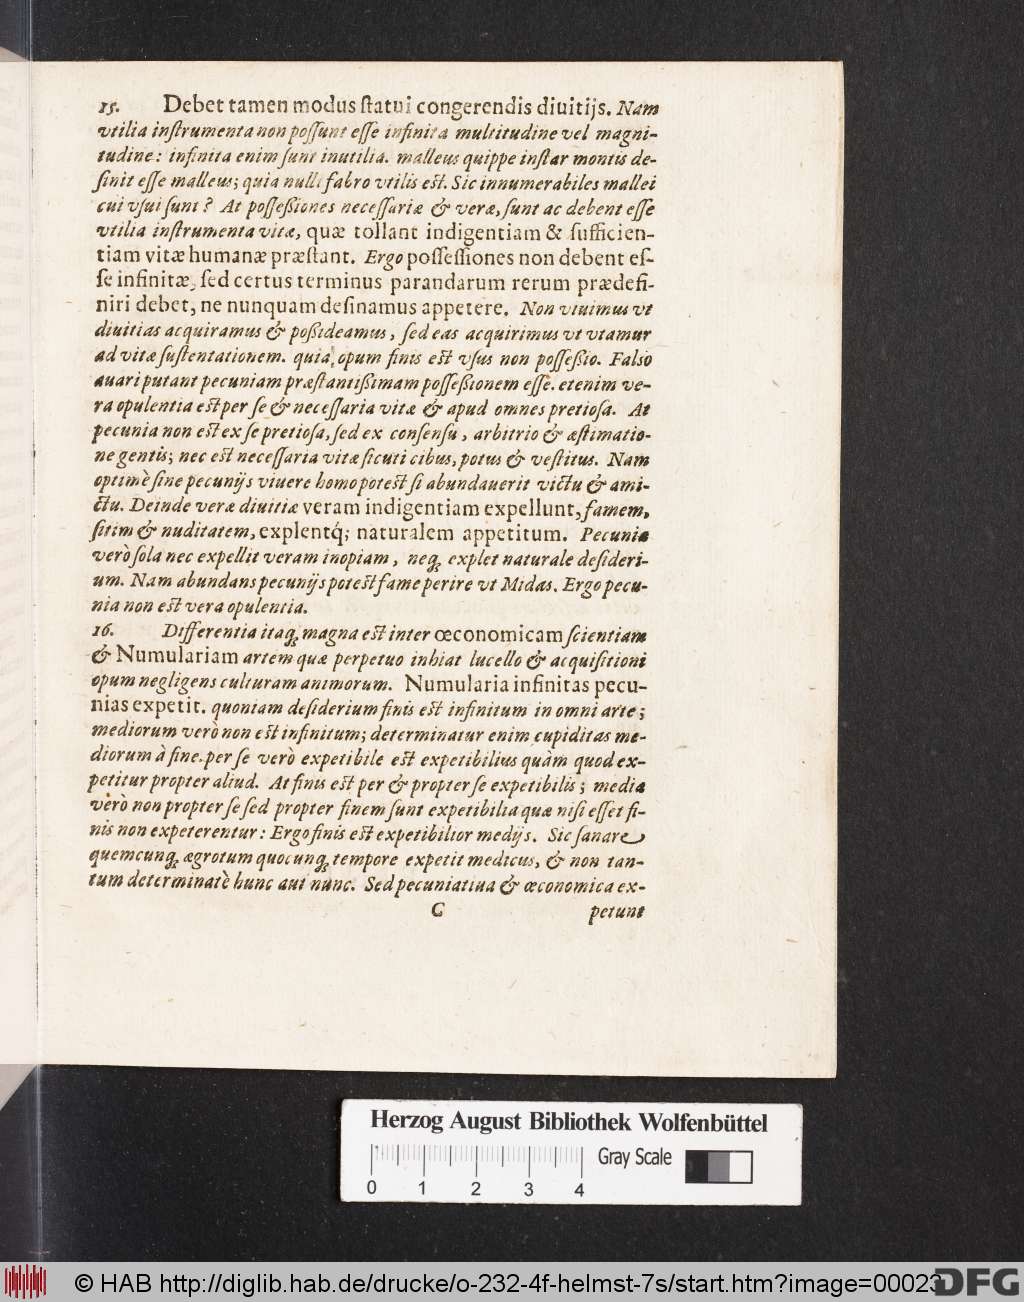 15. Debet tamen modus ſtatui congerendis diuitijs. Nam
vtilia inſtrumenta non poſſunt eſſe infinita multitudine vel magni-
tudine: infinita enim ſunt inutilia. malleus quippe inſtar montis de-
ſinit eſſe malleus; quia nulli fabro vtilis est. Sic innumerabiles mallei
cui vſui ſunt? At poſſeßiones neceſſariæ & veræ, ſunt ac debent eſſe
vtilia inſtrumenta vitæ, quæ tollant indigentiam & ſufficien-
tiam vitæ humanæ præſtant. Ergo poſſeſſiones non debent eſ-
ſe infinitæ, ſed certus terminus parandarum rerum prædefi-
niri debet, ne nunquam deſinamus appetere. Non viuimus vt
diuitias acquiramus & poßideamus, ſed eas acquirimus vt vtamur
ad vitæ ſuſtentationem. quia opum finis est vſus non poſſeßio. Falso
auari putant pecuniam præſtantißimam poſſeßionem eſſe. etenim ve-
ra opulentia est per ſe & neceſſaria vitæ & apud omnes pretioſa. At
pecunia non est ex ſe pretioſa, ſed ex conſenſu, arbitrio & æſtimatio-
ne gentis; nec est neceſſaria vitæ ſicuti cibus, potus & veſtitus. Nam
optimè ſine pecunijs viuere homo potest ſi abundauerit victu & ami-
ctu. Deinde veræ diuitiæ veram indigentiam expellunt, famem,
ſitim & nuditatem, explentq́; naturalem appetitum. Pecunia
verò ſola nec expellit veram inopiam, neq; explet naturale deſideri-
um. Nam abundans pecunijs potest fame perire vt Midas. Ergo pecu-
nia non est vera opulentia.
16. Differentia itaq; magna est inter œconomicam ſcientiam
& Numulariam artem quæ perpetuo inhiat lucello & acquiſitioni
opum negligens culturam animorum. Numularia infinitas pecu-
nias expetit. quoniam deſiderium finis est infinitum in omni arte;
mediorum verò non est infinitum; determinatur enim cupiditas me-
diorum à fine. per ſe verò expetibile est expetibilius quàm quod ex-
petitur propter aliud. At finis est per & propter ſe expetibilis; media
vèrò non propter ſe ſed propter finem ſunt expetibilia quæ niſi eſſet fi-
nis non expeterentur: Ergo finis est expetibilior medijs. Sic ſanare
quemcunq; ægrotum quocunq; tempore expetit medicus, & non tan-
tum determinatè hunc aut nunc. Sed pecuniatiua & œconomica ex-
C petunt
Herzog August Bibliothek Wolfenbüttel
Gray Scale
0 1 2 3 4
© HAB http://diglib.hab.de/drucke/o-232-4f-helmst-7s/start.htm?image=00023
DFG